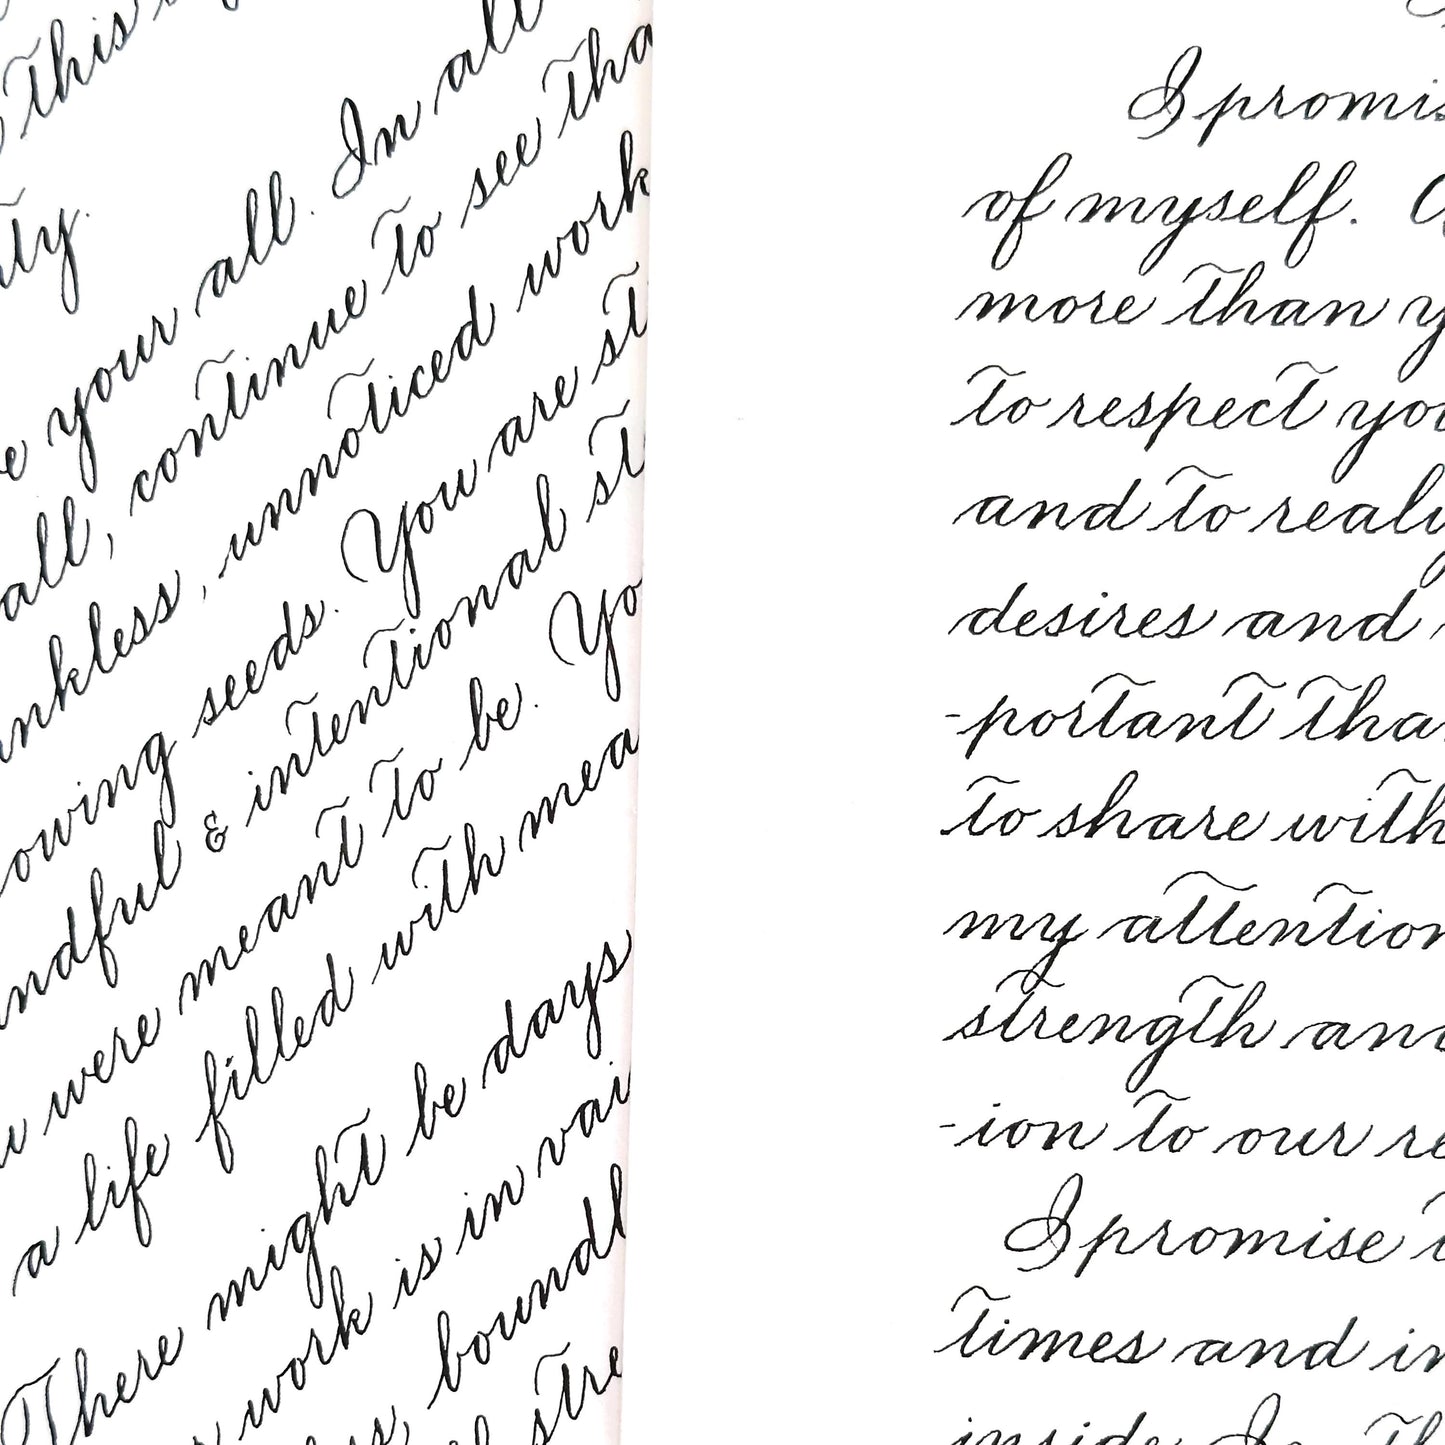 this
ty.
your all. In all
all, continue to see tha
nkless, unnoticed work
owing seeds. You are st
ndful & intentional st
u were meant to be. Yo
a life filled with mea
There might be days
work is in vai
boundl
stre
I promis
of myself.
more than y
to respect you
and to realiy
desires and
-portant tha
to share with
my attention
strength and
-ion to our re
I promise t
times and in
inside